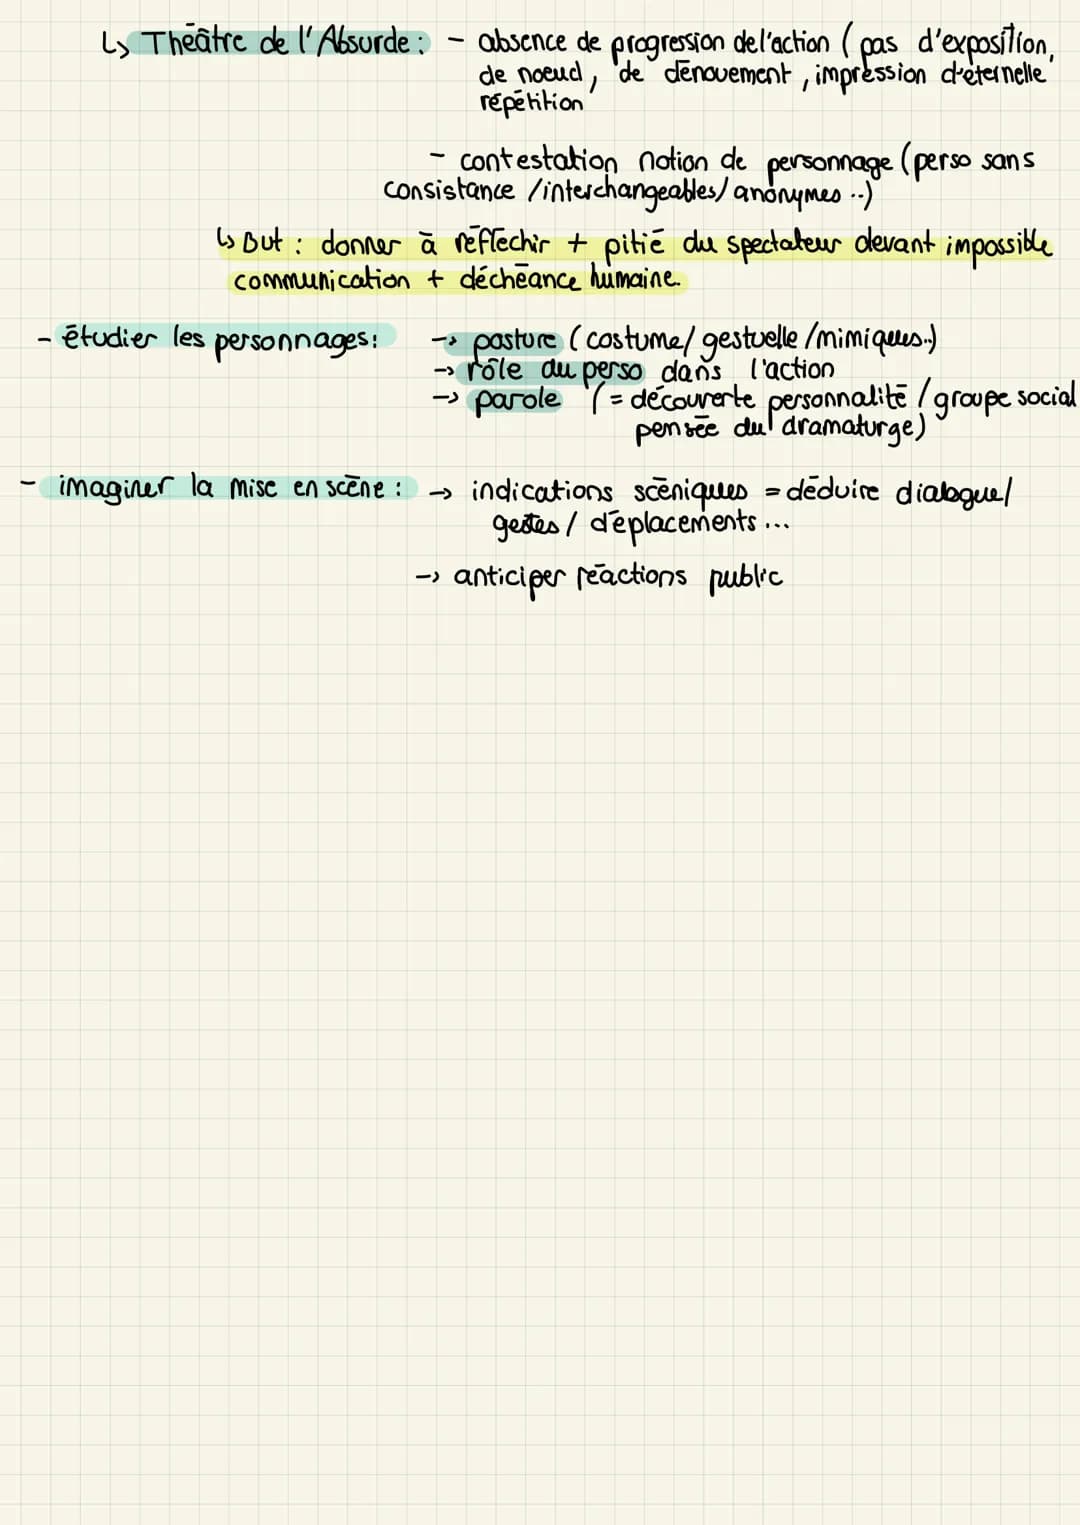 ↳ Théâtre de l'Absurde : - absence de progression de l'action ( pas d'exposition,
de noeud, de dénouement, impression d'éternelle
répétition
- contestation notion de personnage (perso sans
consistance /interchangeables/ anonymes ..)
↳ But : donner à réfléchir + pitié du spectateur devant impossible
communication + déchéance humaine.
- étudier les personnages: → posture ( costume/ gestuelle /mimiques..)
→ rôle du perso dans l'action
→ parole (= découverte personnalité / groupe social
pensée du dramaturge)
- imaginer la mise en scène : → indications scéniques = déduire dialogue/
gestes / déplacements ...
→ anticiper réactions public